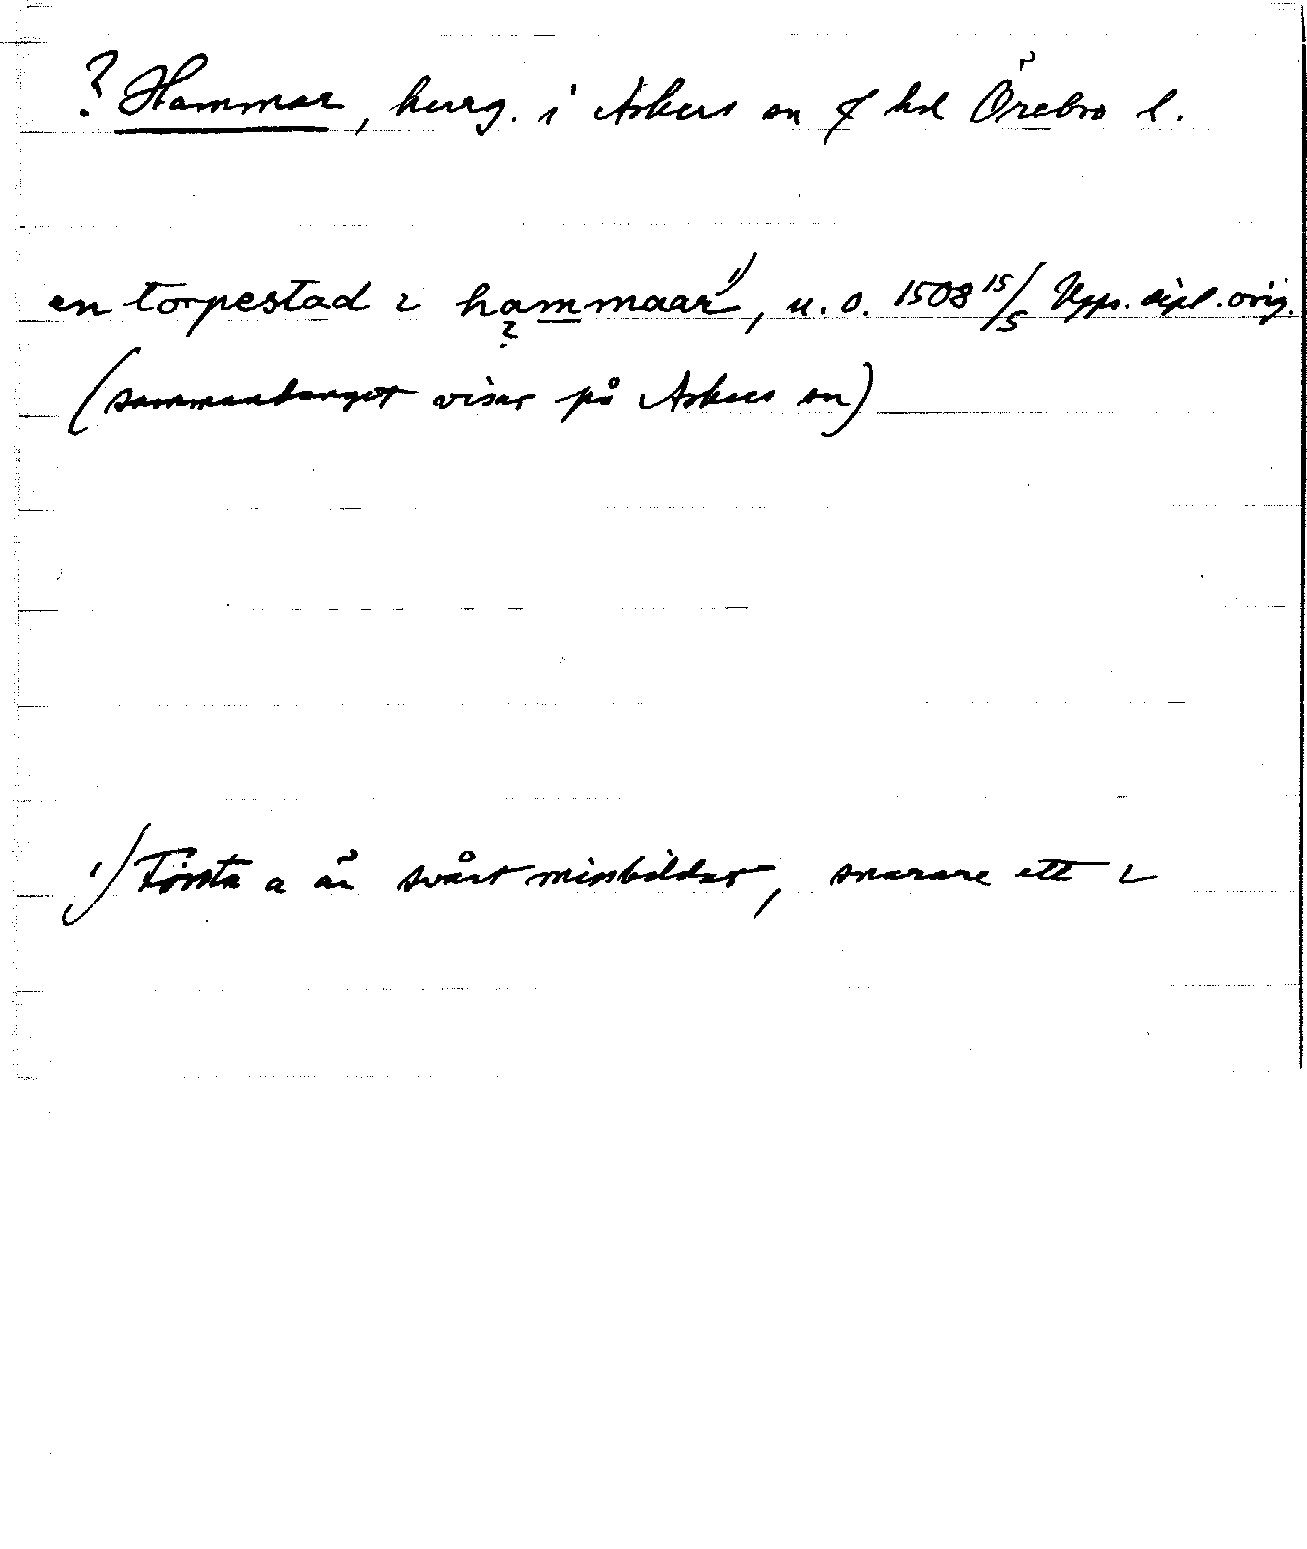 ? Hammar, herrg. i Askers sn o hd Örebro l.
en torpestad i hammaar 1), u. o. 1508 15/5 Upps. dipl. orig.
?
(sammanhanget visar på Askers sn)
1) Första a är svårt missbildat, snarare ett i